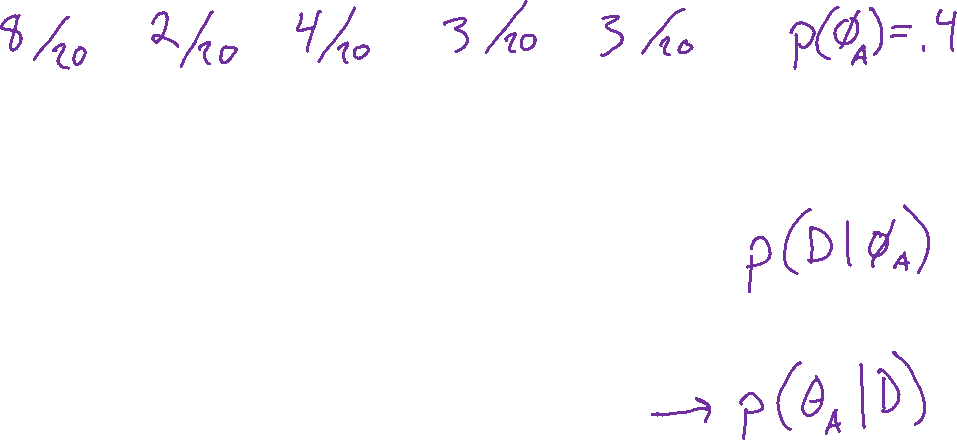 8/20 2/20 4/20 3/20 3/20 p(ϕ_A)=.4
p(D|ϕ_A)
→ p(θ_A|D)